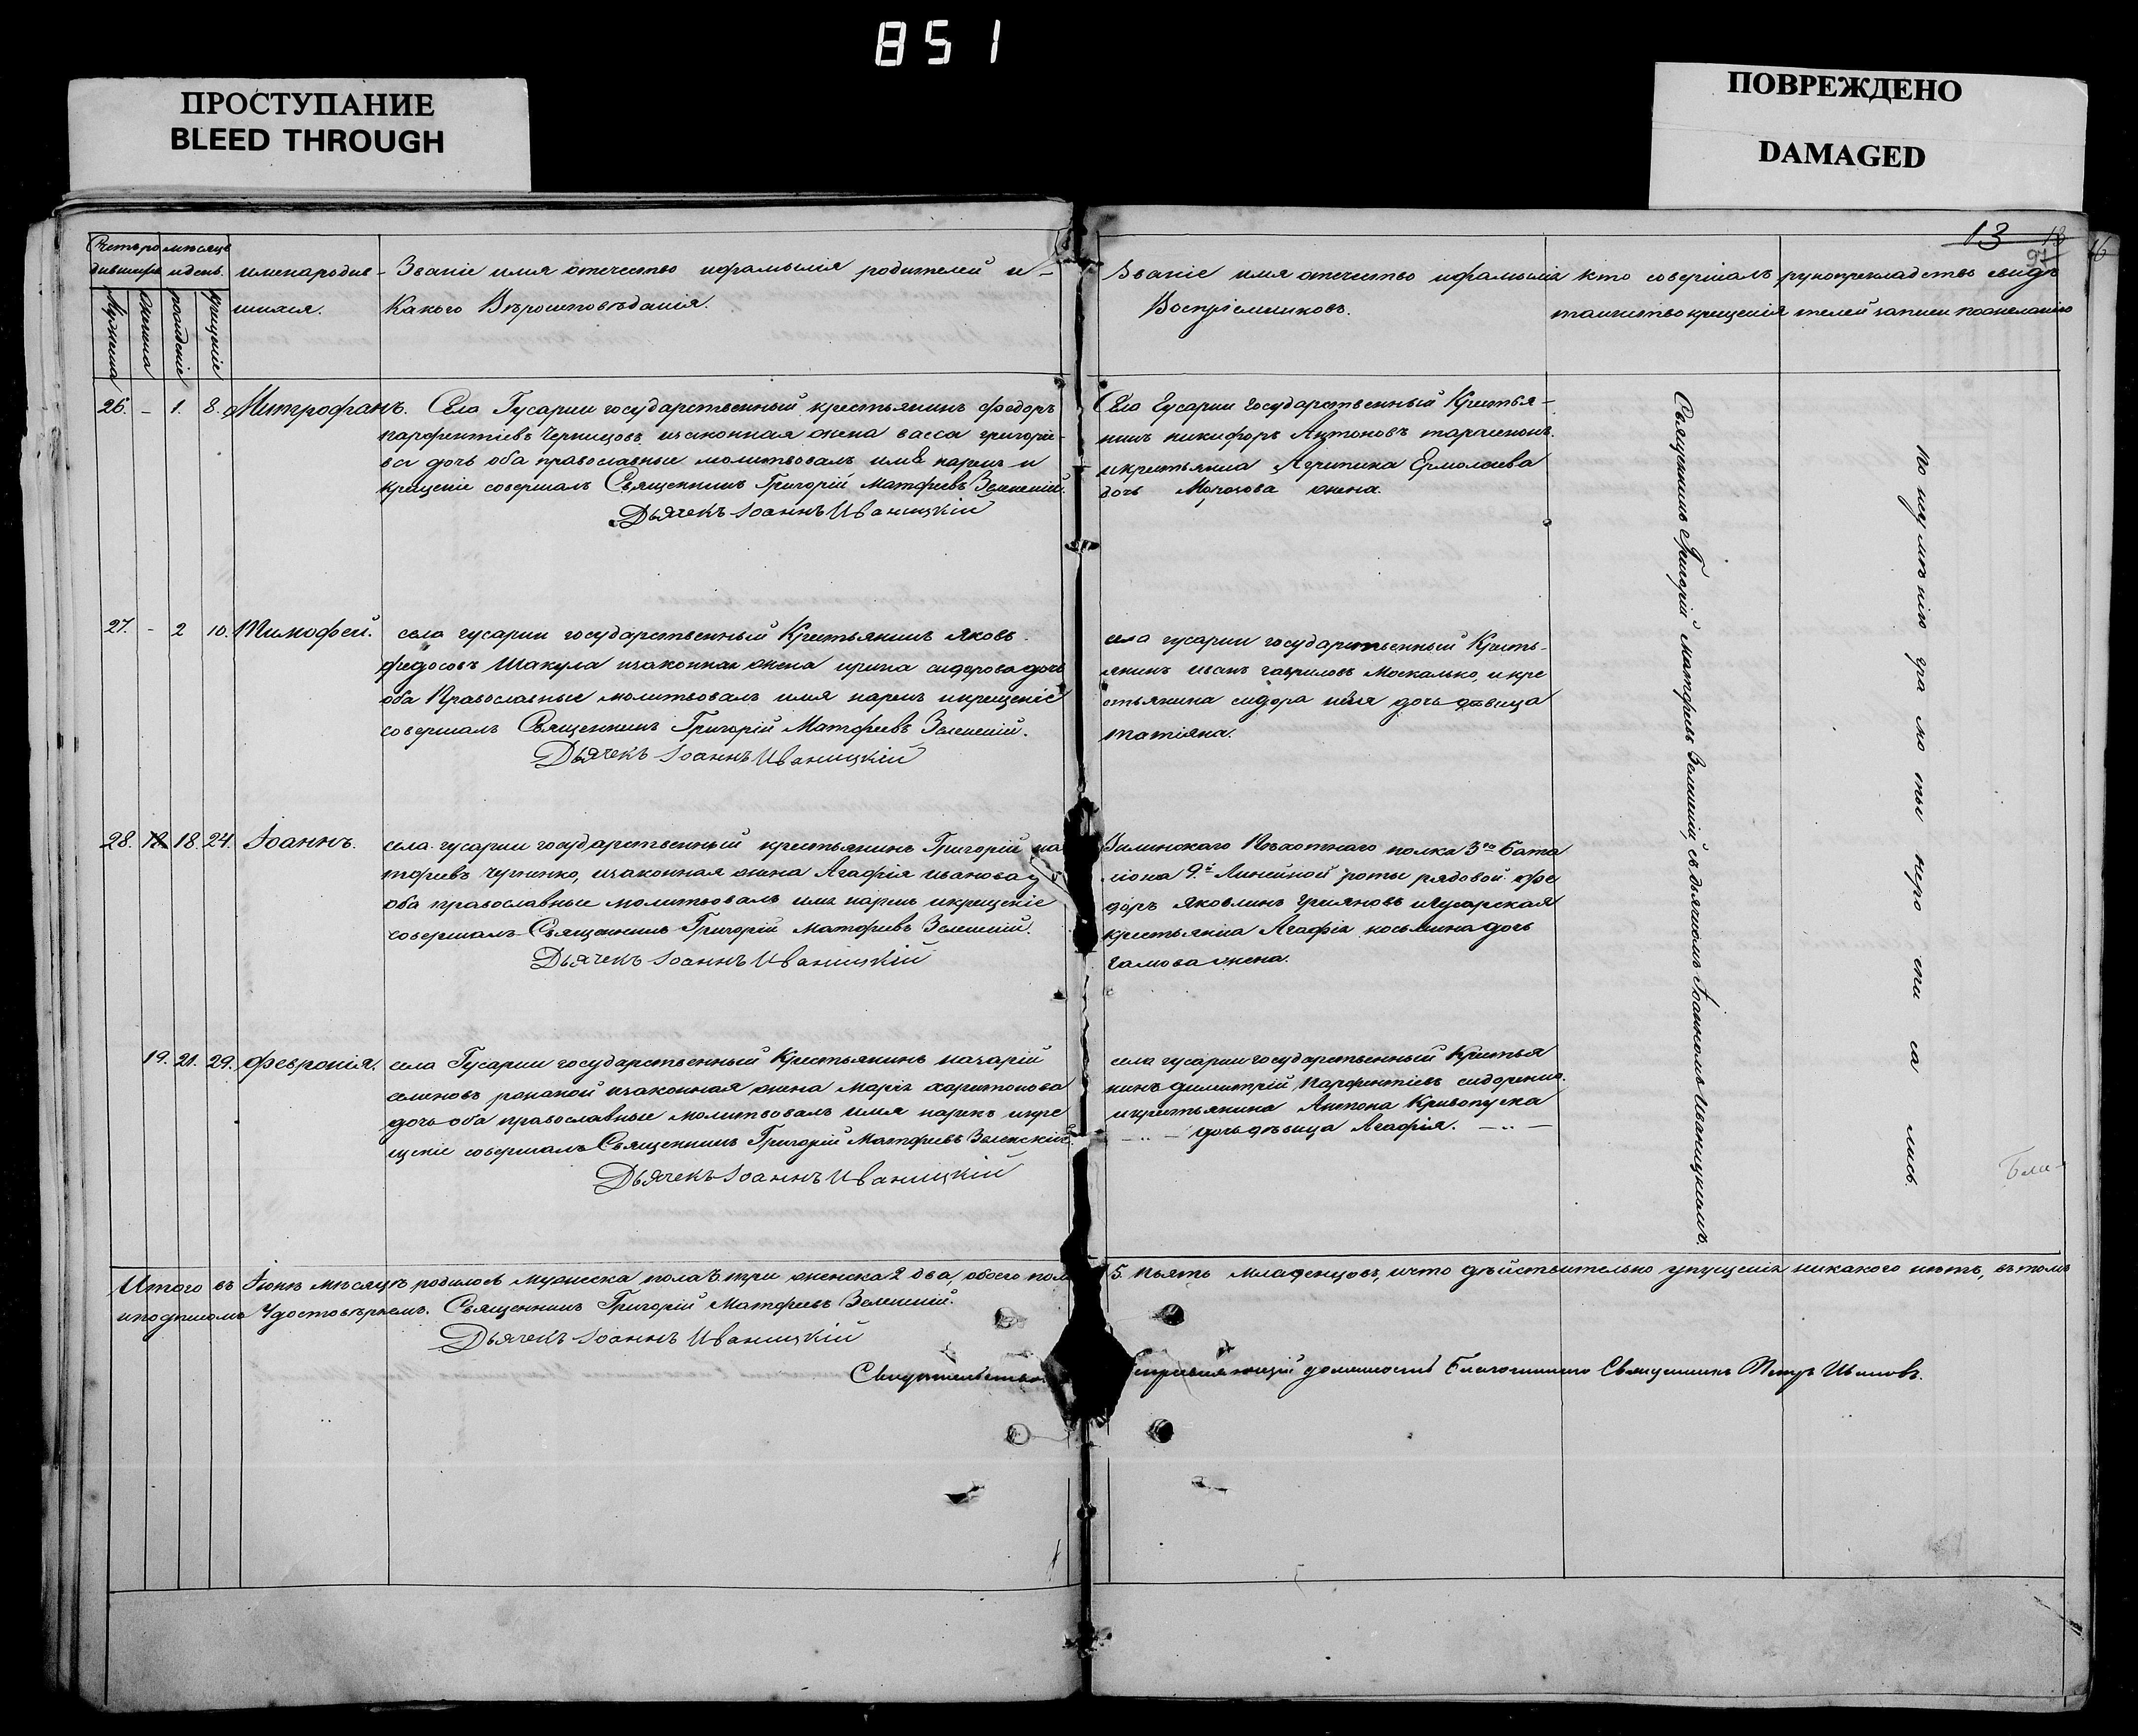 851
ПРОСТУПАНИЕ
BLEED THROUGH
ПОВРЕЖДЕНО
DAMAGED
13
97
16
Счетъ ро мѣсяцъ
дившихся и день.
мужеска
женска
рожденіе
крещеніе
имена родив-
шихся.
Званіе имя отечество ифамилія родителей и-
Какого Вѣроисповѣданія.
Званіе имя отечество ифамилія
Воспріемниковъ.
кто совершалъ
таинство крещенія
рукоприкладство свидѣ
телей записи пожеланію
26. - 1. 8. Митрофанъ.
Села Гусарки государственный крестьянинъ федоръ
парфентіевъ изаконная жена васса григоріе-
ва дочь оба православные молитвовалъ имя нарекъ и
крещеніе совершалъ Священникъ Григорій Матфеевъ Зеленскій.
Дьячекъ Іоаннъ Иваницкій
Села Гусарки Государственный Крестья-
нинъ никифоръ Антоновъ
икрестьянка Агрипина Ермолаева
дочь жена.
27. - 2 10. Тимофей.
села гусарки государственный Крестьянинъ Яковъ
федосовъ Шакула изаконная жена ирина сидорова дочь
оба Православные молитвовалъ имя нарекъ икрещеніе
совершалъ Священникъ Григорій Матфеевъ Зеленскій.
Дьячекъ Іоаннъ Иваницкій
села гусарки государственный Кресть-
янинъ иванъ гавриловъ Москалько, икре
стьянина сидора дочь дѣвица
татіяна.
28. 18. 24. Іоаннъ.
села гусарки государственный крестьянинъ Григорій ма
тфеевъ изаконная жена Агафія иванова д
оба православные молитвовалъ имя нарекъ икрещеніе
совершалъ Священникъ Григорій Матфеевъ Зеленскій.
Дьячекъ Іоаннъ Иваницкій
Пѣхотнаго полка 3го Бата
ліона 9й Линейной роты рядовой фе
доръ Яковлинъ игусарская
крестьянка Агафія косьмина дочь
жена.
19. 21. 29. февронія.
села Гусарки государственный Крестьянинъ назарій
семеновъ изаконная жена марія харитонова
дочь оба православные молитвовалъ имя нарекъ икре
щеніе совершалъ Священникъ Григорій Матфеевъ Зеленскій.
Дьячекъ Іоаннъ Иваницкій
села гусарки государственный Крестья
нинъ димитрій Парфентіевъ сидоренко.
икрестьянина Антона Кривопуска
дочь дѣвица Агафія.
Священникъ Григорій Матфеевъ Зеленскій, съдьячкомъ Іоанномъ Иваницкимъ.
По неу мѣ нію гра мо ты неро спи са лись.
Бла-
Итого въ Іюнѣ мѣсяцѣ родилось мужеска пола 3. три женска 2 два, обоего пола 5. пьять младенцовъ, ичто дѣйствительно упущенія никакого нѣтъ, въ томъ
иподписомъ Удостовѣряемъ. Священникъ Григорій Матфеевъ Зеленскій.
Дьячекъ Іоаннъ Иваницкій
должность Благочиннаго Священникъ Петръ Ивановъ.